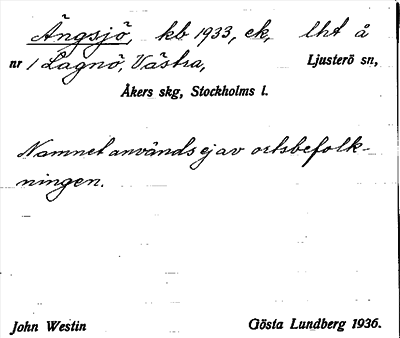 Ängsjö, kb 1933, ek, lht å
nr 1 Lagnö, Västra, Ljusterö sn,
Åkers skg, Stockholms l.
Namnet användsejav ortsbefolk-
ningen.
John Westin Gösta Lundberg 1936.